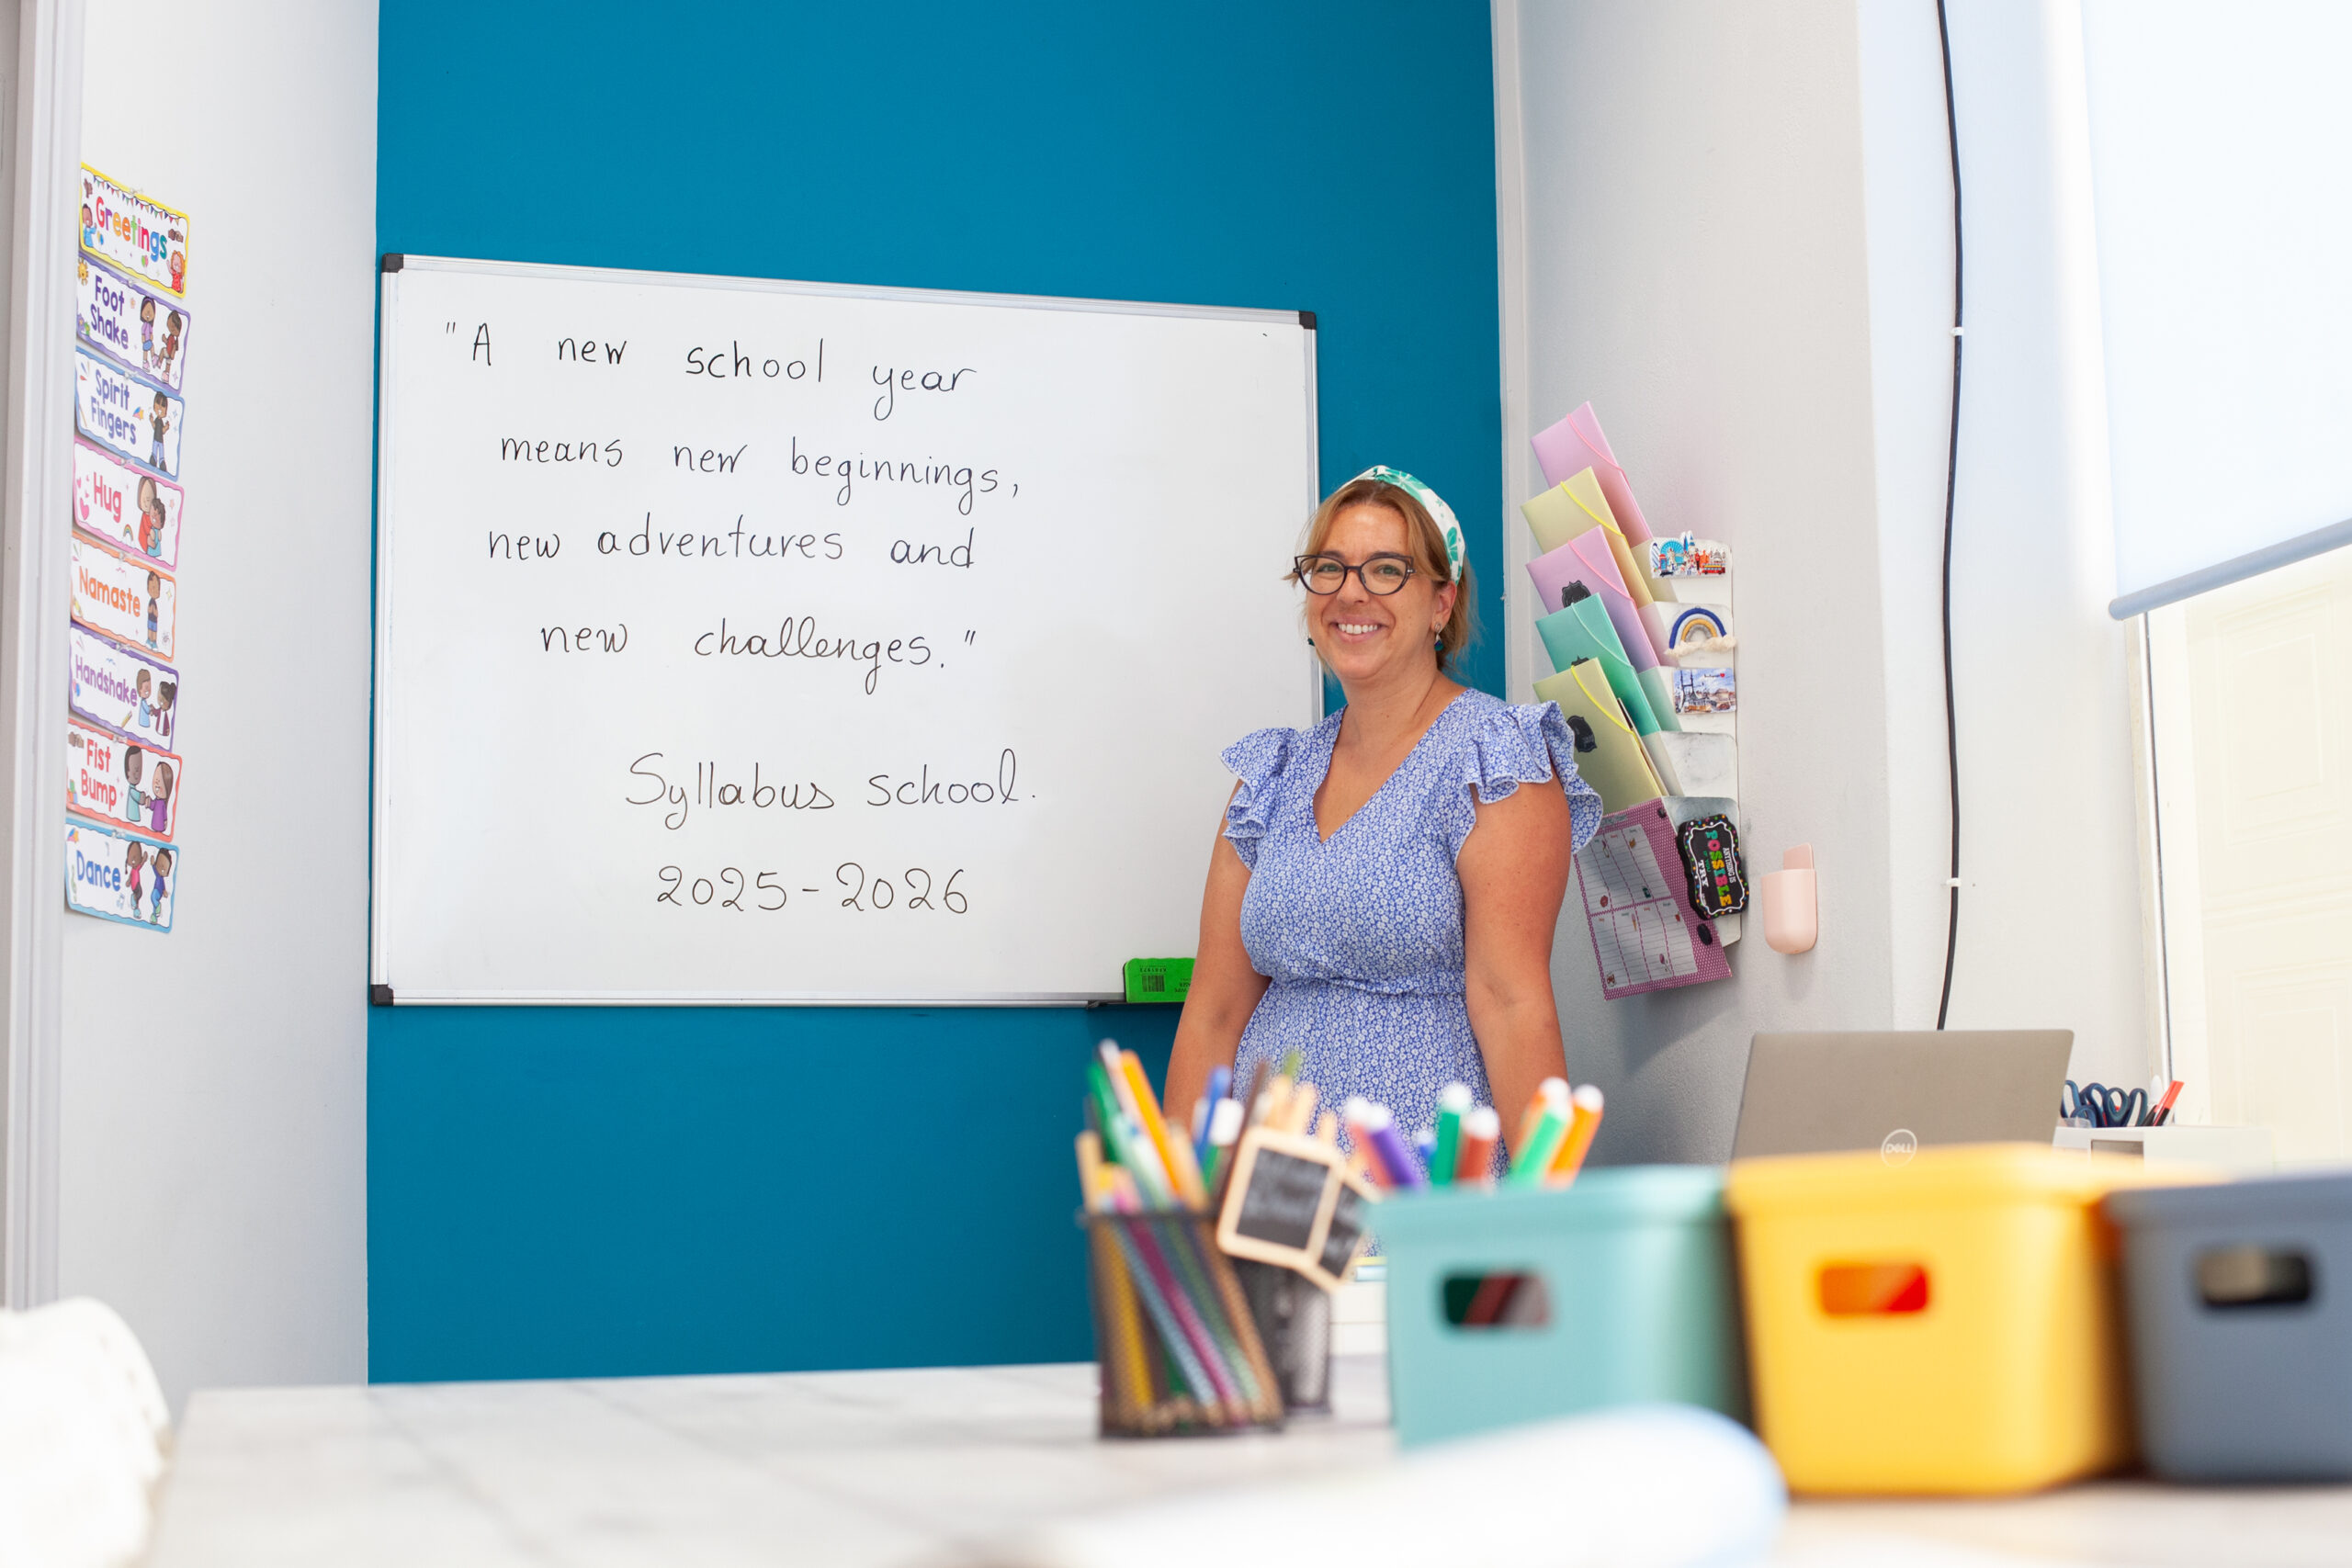 "A new school year
means new beginnings,
new adventures and
new challenges."
Syllabus school.
2025-2026
Greetings
Foot
Shake
Spirit
Fingers
Hug
Namaste
Handshake
Fist
Bump
Dance
ANYTHING IS
POSSIBLE
TRY
DELL